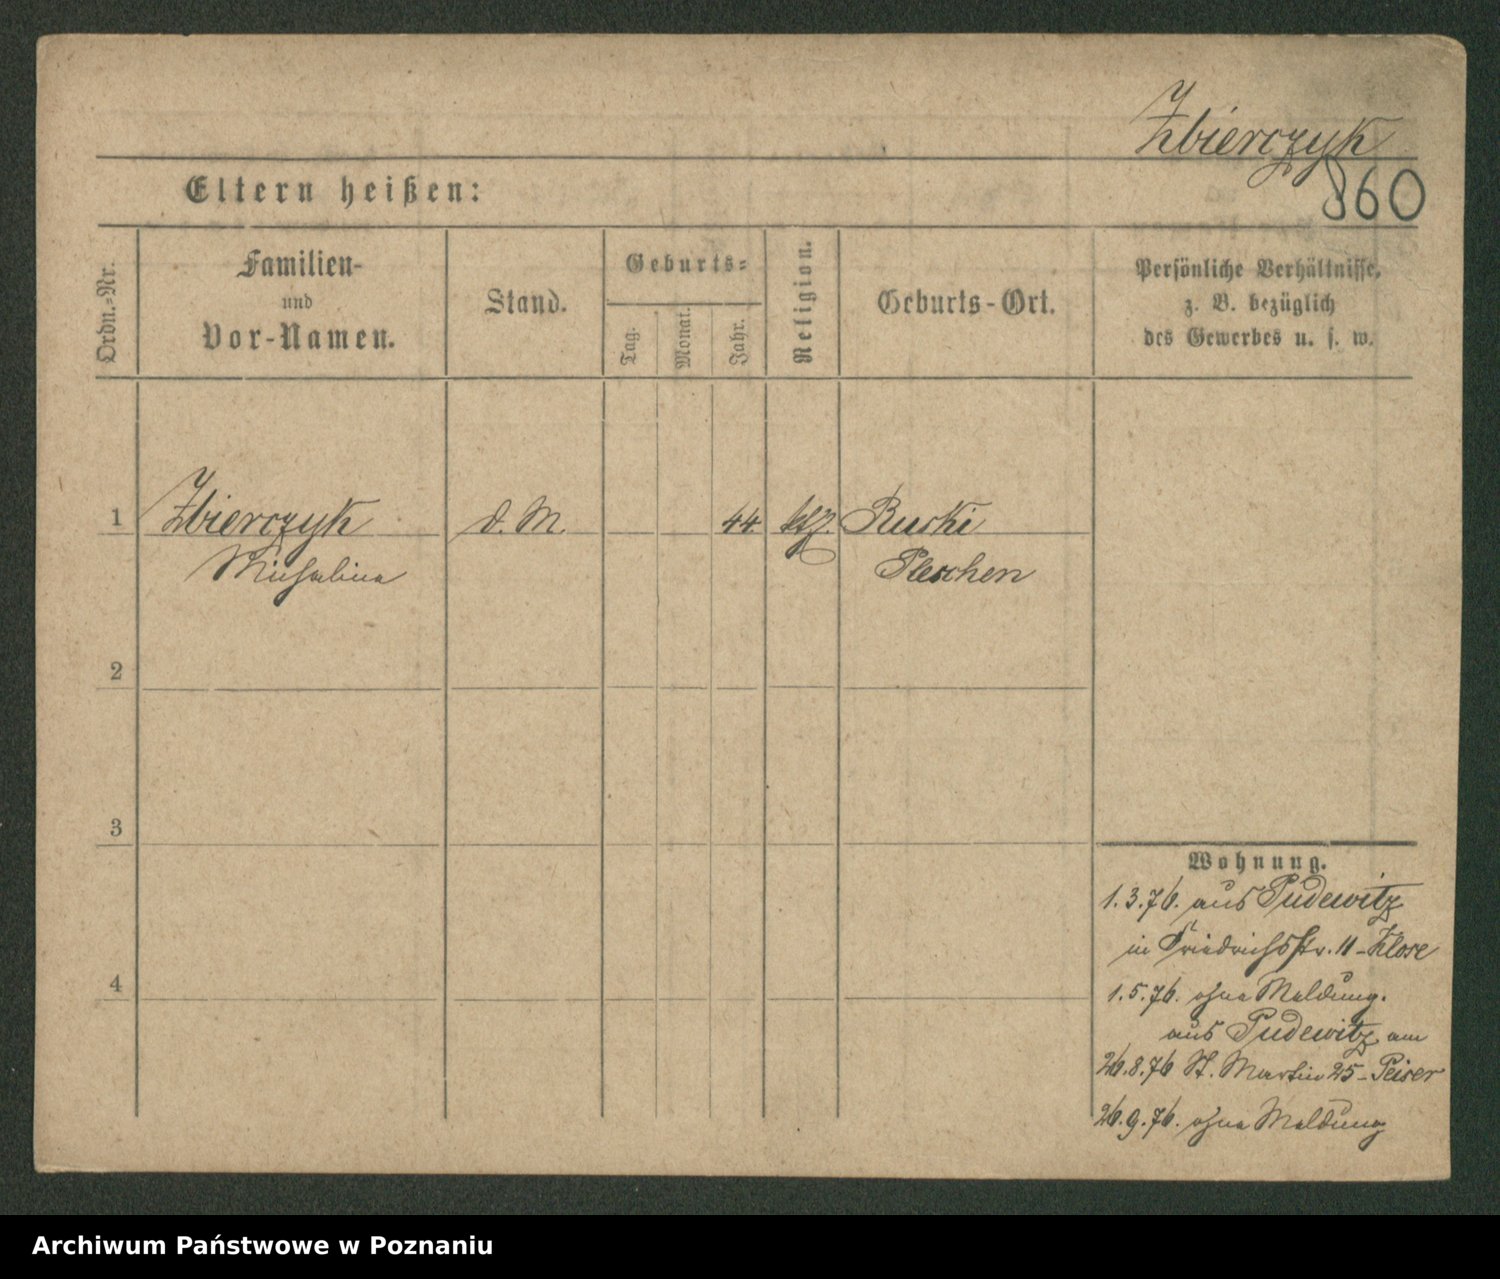 Zbierczyk
860
Eltern heißen:
Ordn.-Nr.
Familien-
und
Vor-Namen.
Stand.
Geburts-
Tag.
Monat.
Jahr.
Religion.
Geburts-Ort.
Persönliche Verhältnisse,
z. B. bezüglich
des Gewerbes u. s. w.
1 Zbierczyk d. M. 44. kth. Ruski
Michalina Pleschen
2
3
4
Wohnung.
1.3.76. aus Pudewitz
in Friedrichsstr. 11 - Klose
1.5.76. ohne Meldung.
aus Pudewitz am
26.8.76 St. Martin 25 - Peiser
26.9.76. ohne Meldung
Archiwum Państwowe w Poznaniu